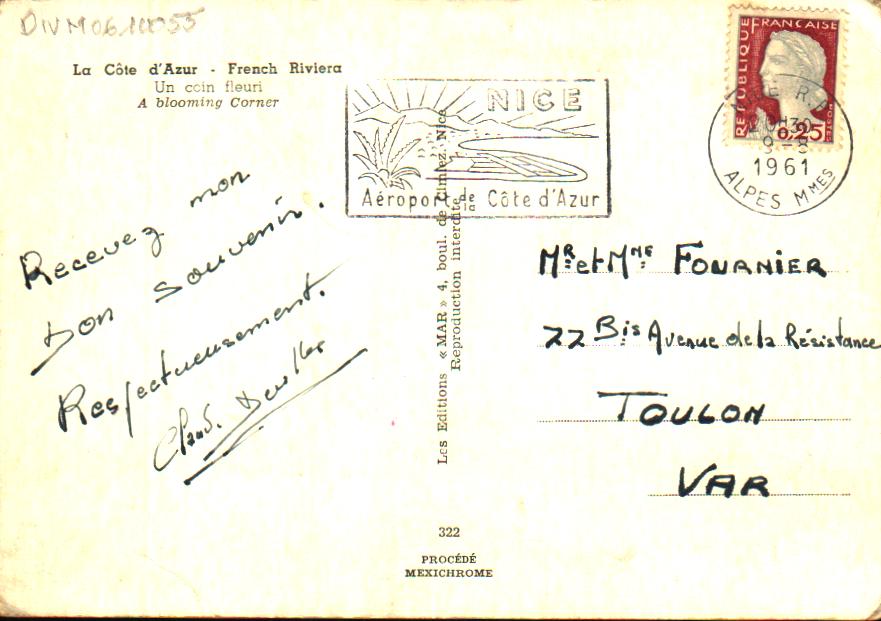 DIVM0611055
La Côte d'Azur - French Riviera
Un coin fleuri
A blooming Corner
NICE
Aéroport de la Côte d'Azur
REPUBLIQUE FRANÇAISE
0,25
POSTES
NICE R.P.
20H30
9-8
1961
ALPES MMES
Recevez mon
bon souvenir.
Respectueusement.
Les Editions « MAR » 4, boul. de Cimiez, Nice
Reproduction interdite
Mr et Mme FOURNIER
22 Bis Avenue de la Résistance
TOULON
VAR
322
PROCÉDÉ
MEXICHROME